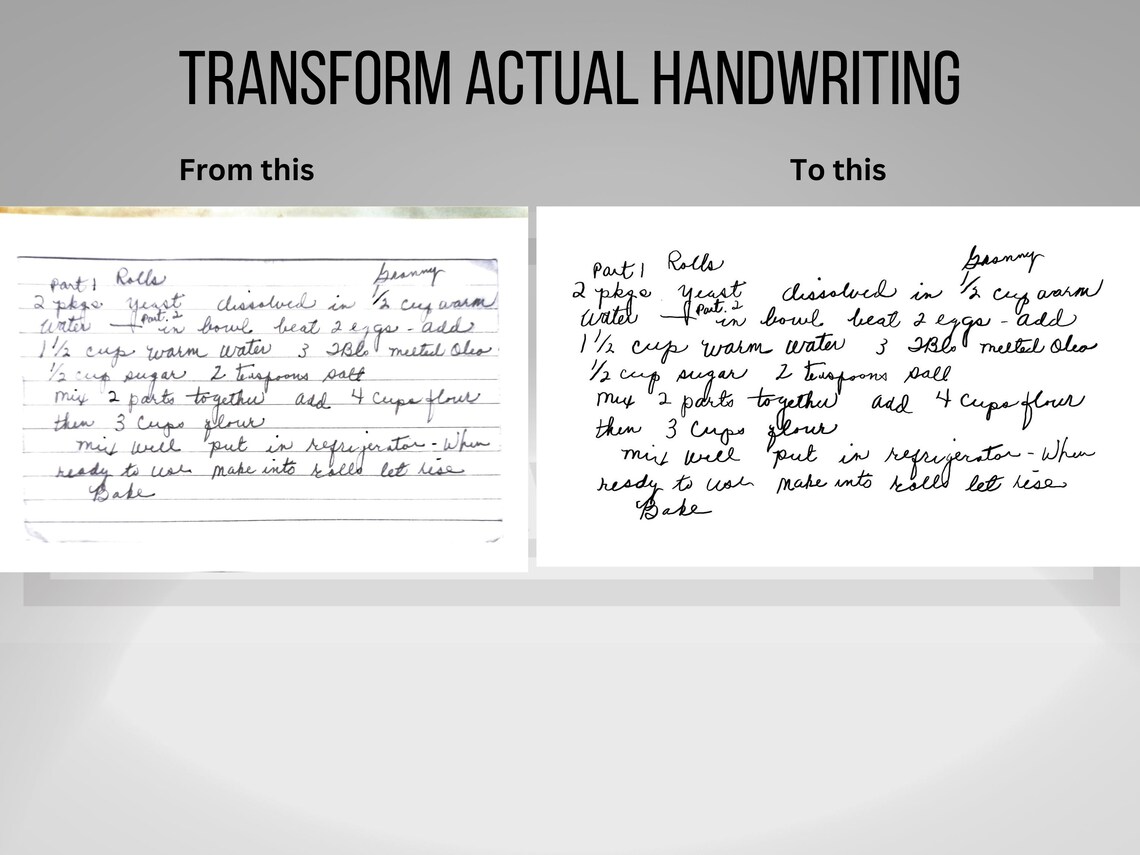 TRANSFORM ACTUAL HANDWRITING
From this
To this
Part 1 Rolls Granny
2 pkgs yeast dissolved in 1/2 cup warm
water Part. 2 in bowl beat 2 eggs - add
1 1/2 cup warm water 3 TBls melted Oleo
1/2 cup sugar 2 teaspoons salt
mix 2 parts together add 4 cups flour
then 3 cups flour
mix well put in refrigerator - when
ready to use make into rolls let rise
Bake
Part 1 Rolls Granny
2 pkgs yeast dissolved in 1/2 cup warm
water Part. 2 in bowl beat 2 eggs - add
1 1/2 cup warm water 3 TBls melted Oleo
1/2 cup sugar 2 teaspoons salt
mix 2 parts together add 4 cups flour
then 3 cups flour
mix well put in refrigerator - when
ready to use make into rolls let rise
Bake